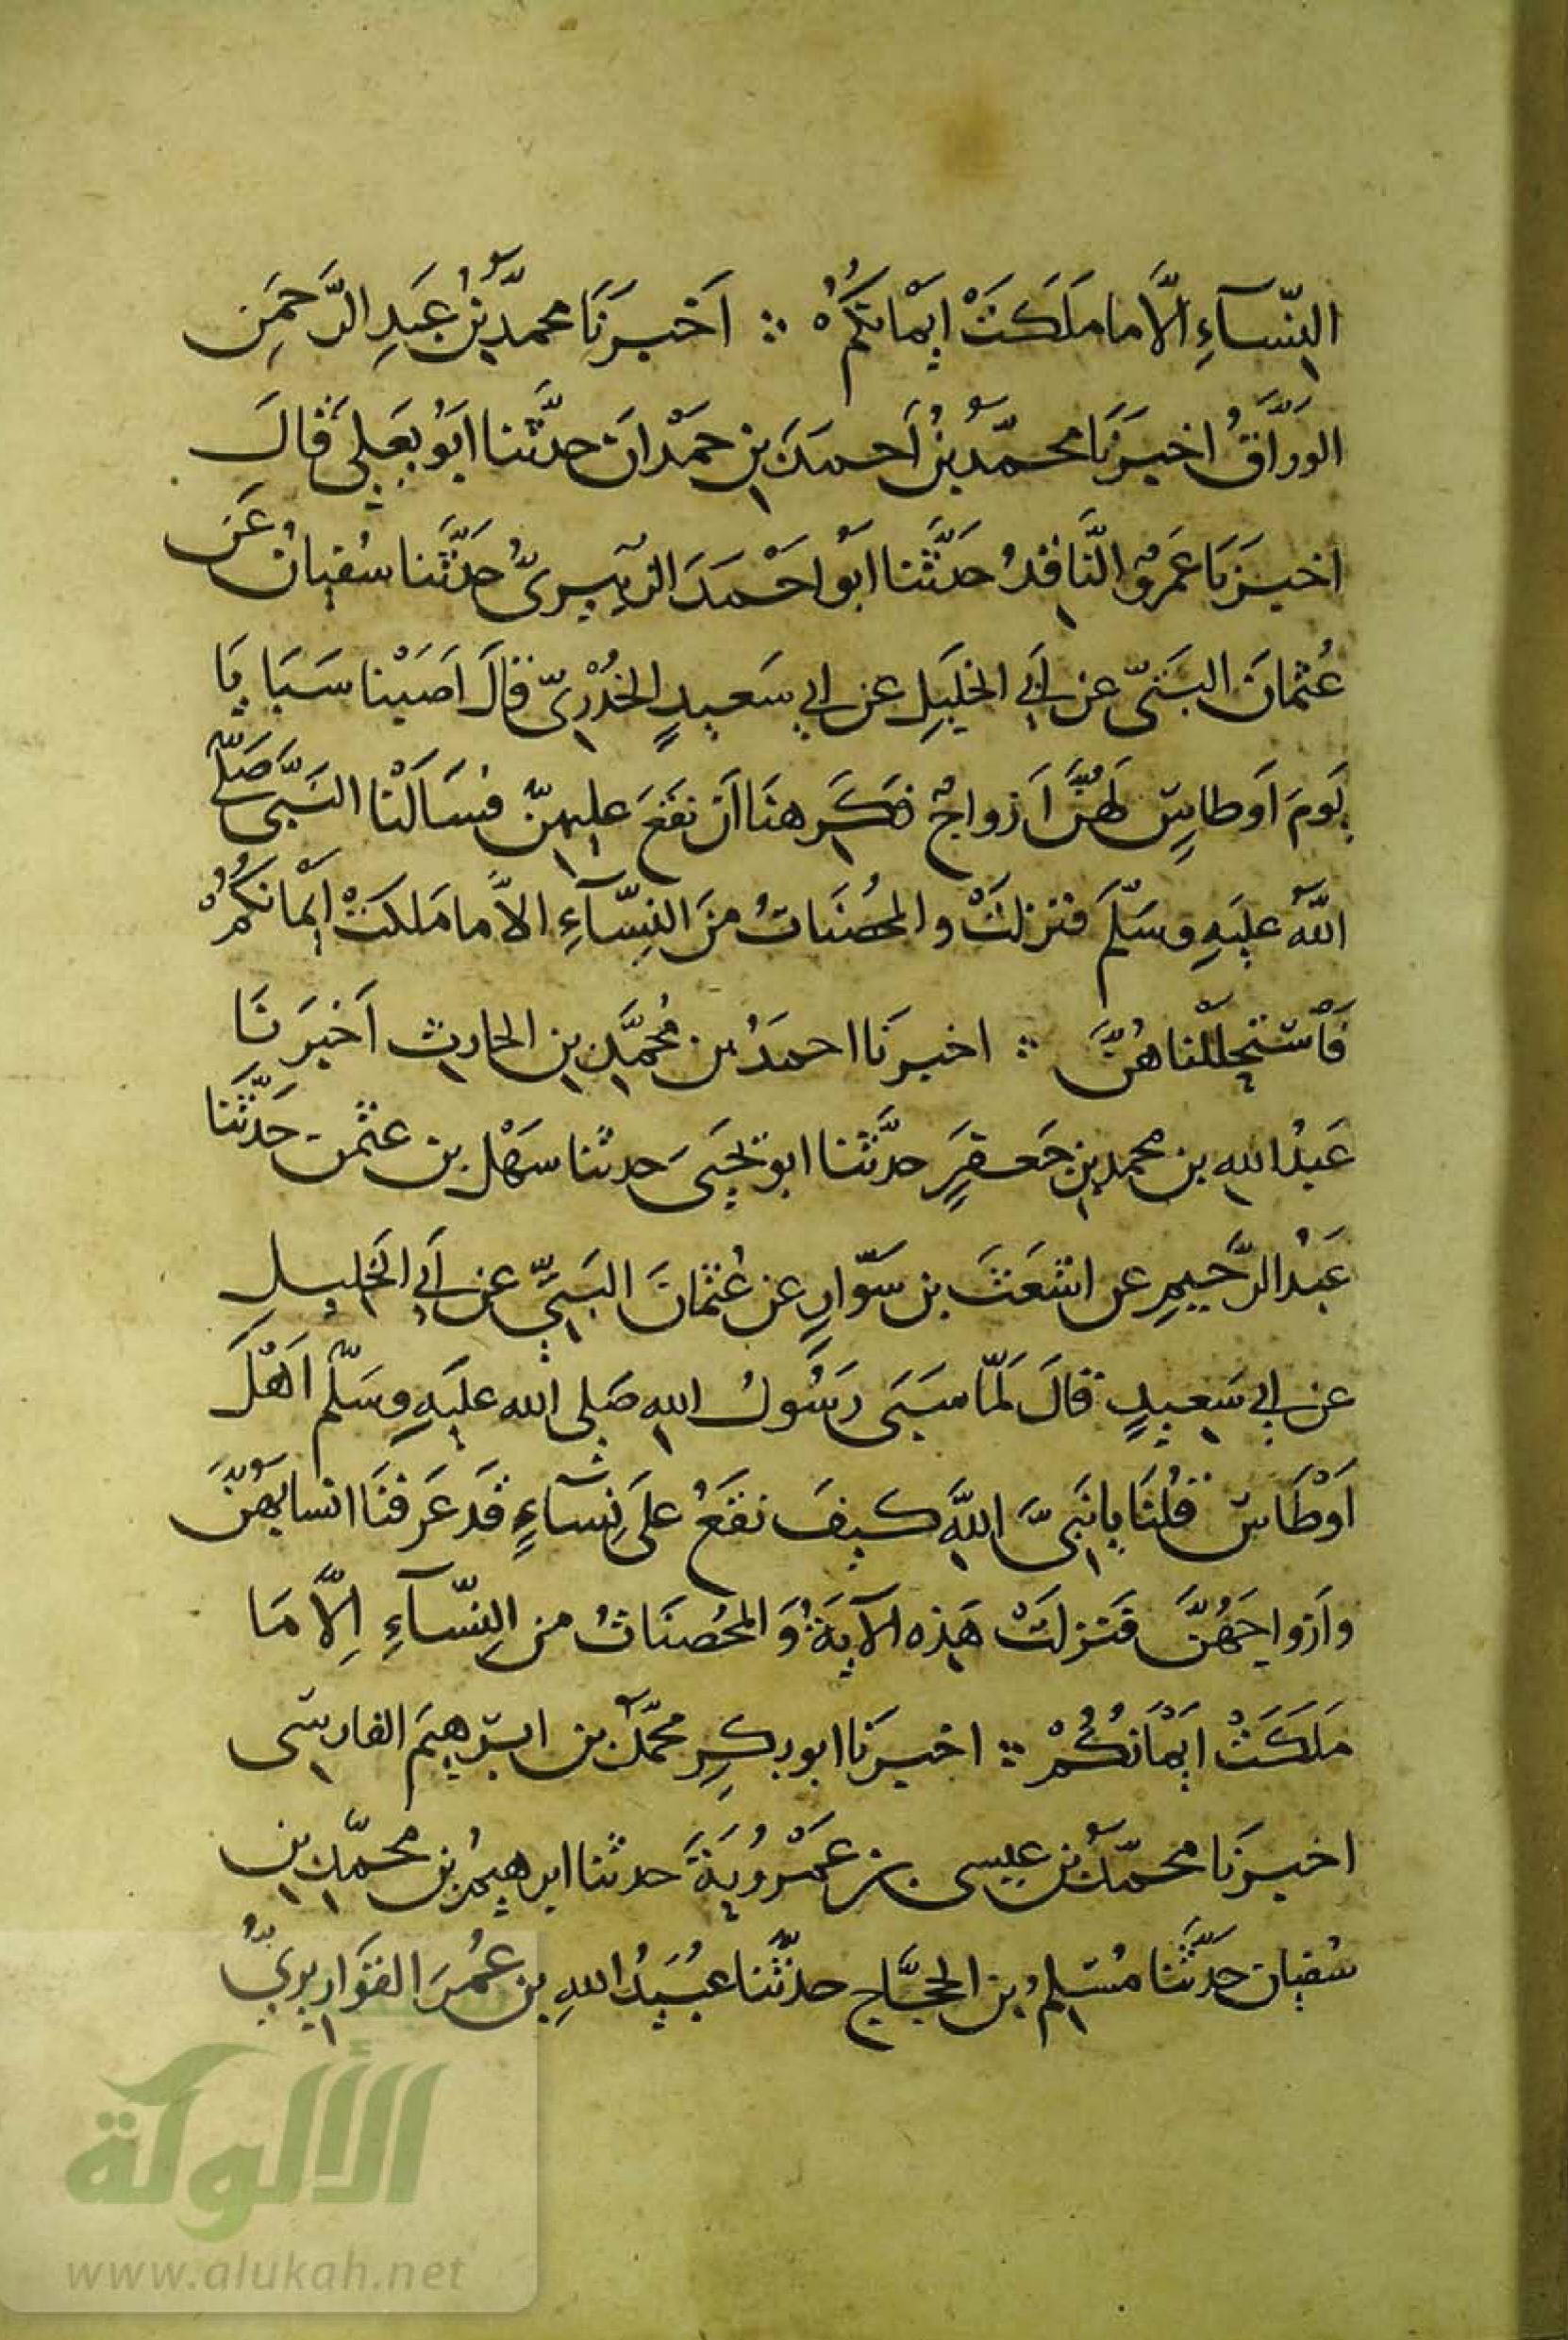 النِّسَآءِ الَّا ما مَلَكَتْ ايْمانكُمْ ه ∴ اَخْبَرَنَا محمدُ بْنُ عَبدِ الرَّحمَنِ
الوَرَّاقُ اخبَرَنَا محمّدُ بْنُ اَحمدَ بنِ حمْدَانَ حدَّثنا ابُو يَعلى قالَ
اخبرَنَا عَمْرٌو النَّاقدُ حدَّثنا ابُو احْمدَ الزُّبيرىُّ حدَّثنا سُفيانُ عَن
عُثمانَ البَتّى عن اَبى الخليلِ عن ابى سَعيدٍ الخُدْرِىّ قالَ اَصَبْنا سَبَايَا
يَومَ اَوطاسٍ لَهُنَّ اَزواجٌ فكَرِهنَا اَن نقَعَ عليهنّ فسَالْنا النَّبىَّ صَلَّى
اللهُ عليَهِ وسَلّمَ فنزلتْ والمحُصَناتُ منَ النِّسَآءِ الاَّ ما مَلكتْ ايْمانكُمْ
فَاسْتحللْناهُنَّ ∴ اخبرنَا احمدُ بن مُحمَّدِ بنِ الحارثِ اَخبَرنَا
عَبدُ اللهِ بن محمدِ بنِ جَعفرٍ حدَّثنا ابو يحيَى حدثنا سَهْل بن عثمن حَدَّثَنا
عَبْدُ الرَّحيمِ عن اشعَثَ بن سَوّارٍ عن عُثمانَ البَتّىِّ عن اَبى الخليلِ
عن ابى سَعيدٍ قالَ لَمّا سَبَى رَسُولُ اللهِ صَلى الله عليَهِ وسَلّم اَهْلَ
اَوْطَاسٍ قُلنَا يا نَبىَّ اللهِ كيفَ نقَعُ علَى نِسآءٍ قَد عَرَفنَا انسابَهُنَّ
وازواجَهُنَّ فنزلَتْ هَذِه الآيَةُ وَالمحُصنَاتُ من النِّسَآءِ اِلَّا مَا
مَلكَتْ ايْمَانُكُمْ ∴ اخبرَنا ابو بكرِ محمّدُ بن ابرَهيَم الفارسى
اخبرَنا محمّدُ بن عيسى بن عَمْرُويَةَ حدثنا ابرهيمُ بن محمّدِ بنِ
سُفيان حَدَّثَنا مُسلمُ بن الحجَّاج حدّثنا عُبَيدُ اللهِ بن عُمَرَ القَوَاريرىُّ
شبكة
الألوكة
www.alukah.net